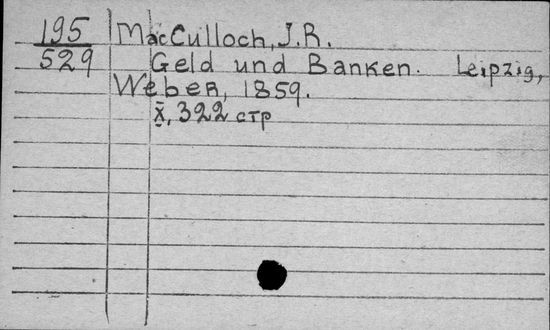 195 MacCulloch, J.R.
529 Geld und Banken. Leipzig,
Weber, 1859.
X, 322 стр